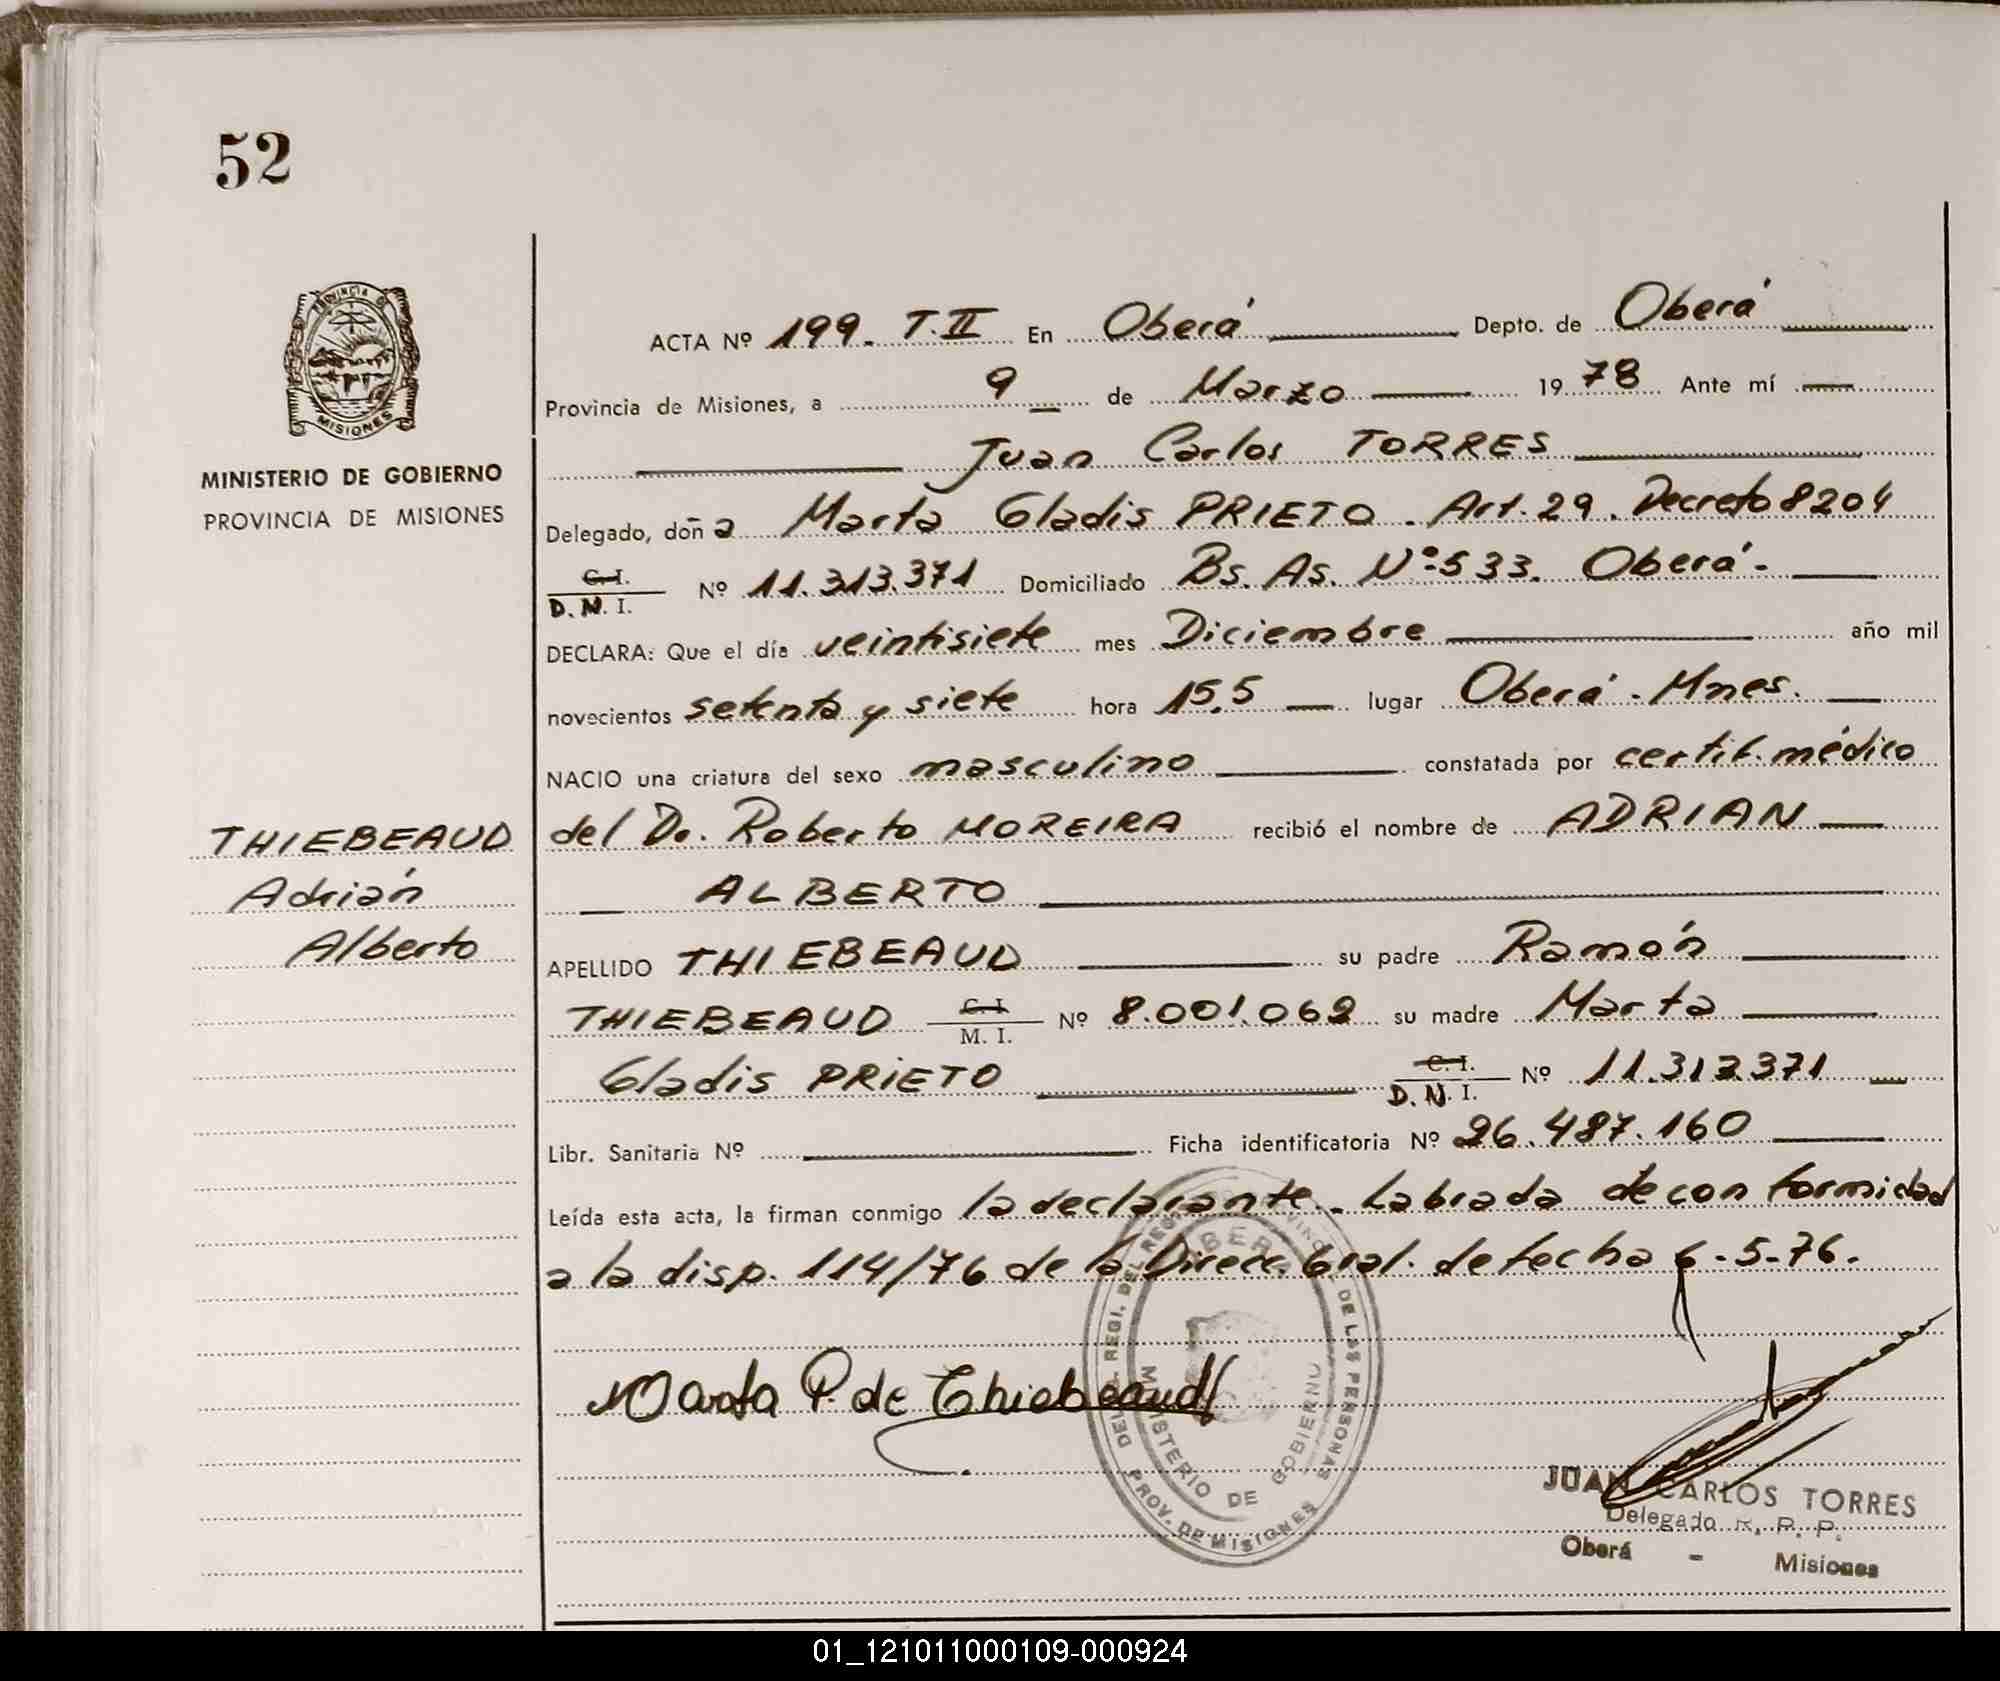 52
PROVINCIA DE
MISIONES
MINISTERIO DE GOBIERNO
PROVINCIA DE MISIONES
THIEBEAUD
Adrián
Alberto
ACTA Nº 199. T.II En Oberá Depto. de Oberá
Provincia de Misiones, a 9 de Marzo 1978 Ante mí
Juan Carlos TORRES
Delegado, doña Marta Gladis PRIETO. Art. 29. Decreto 8204
C. I.
D. N. I. Nº 11.313.371 Domiciliado Bs. As. Nº 533. Oberá.
DECLARA: Que el día veintisiete mes Diciembre año mil
novecientos setenta y siete hora 15,5 lugar Oberá. Mnes.
NACIO una criatura del sexo masculino constatada por certif. médico
del Dr. Roberto MOREIRA recibió el nombre de ADRIAN
ALBERTO
APELLIDO THIEBEAUD su padre Ramón
THIEBEAUD C. I. M. I. Nº 8.001.062 su madre Marta
Gladis PRIETO C. I. D. N. I. Nº 11.313.371
Libr. Sanitaria Nº Ficha identificatoria Nº 26.487.160
Leída esta acta, la firman conmigo la declarante. Labrada de conformidad
a la disp. 114/76 de la Direcc. Gral. de fecha 6-5-76.
Marta P. de Thiebeaud
MINISTERIO DE GOBIERNO
PROV. DE MISIONES
DE LAS PERSONAS
JUAN CARLOS TORRES
Delegado R. P. P.
Oberá - Misiones
01_121011000109-000924